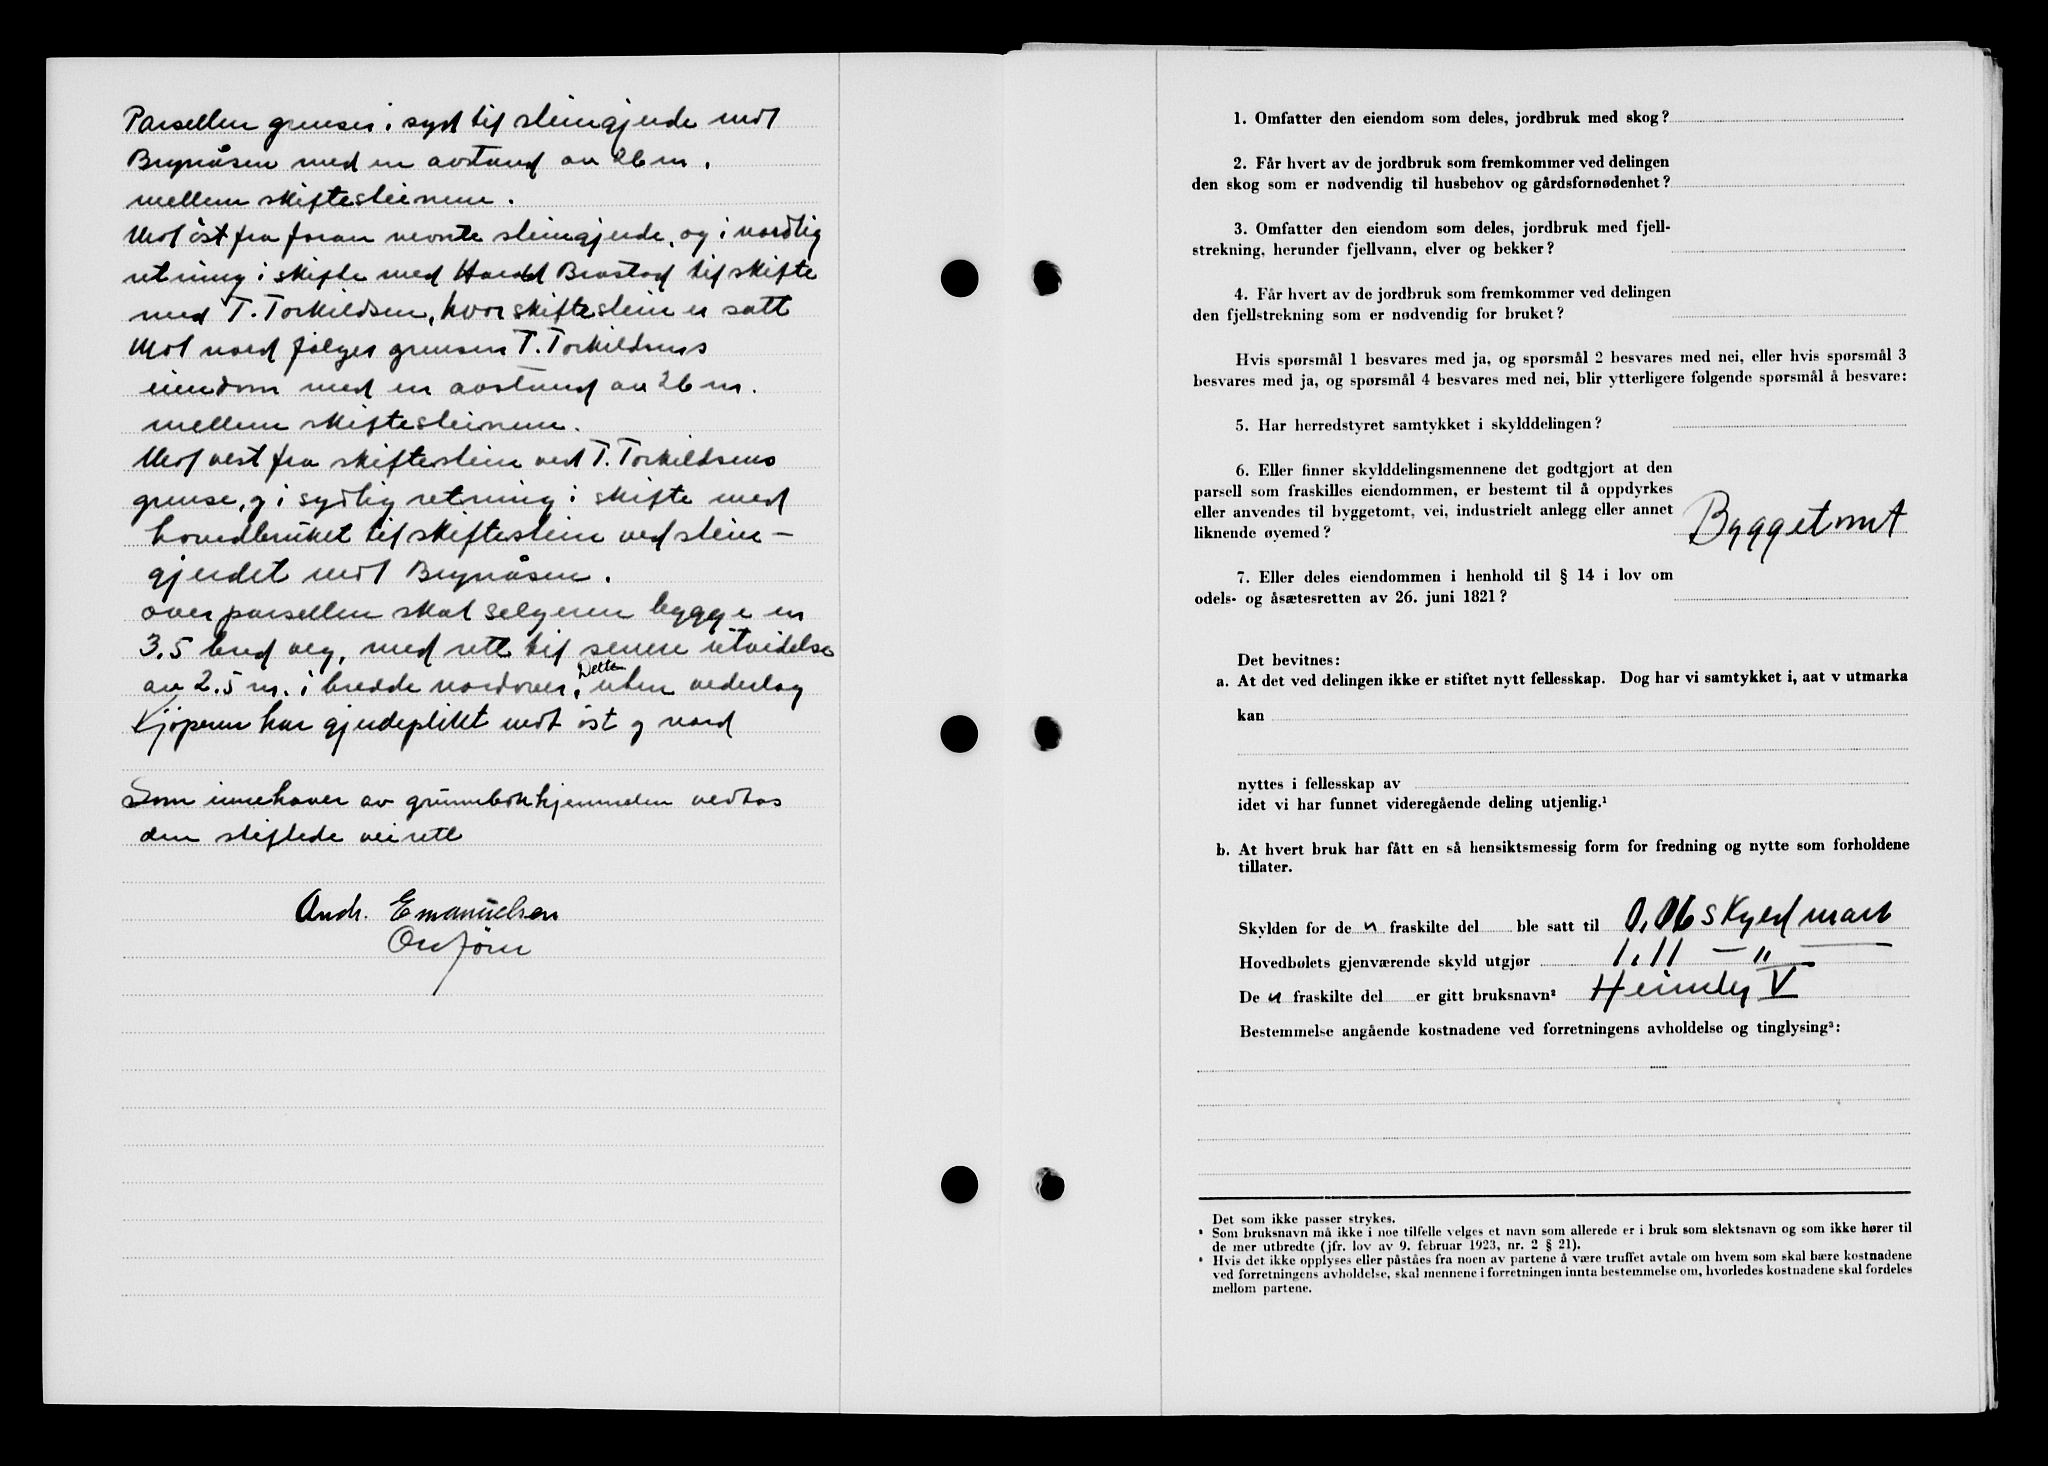 Parsellen grenser i syd til steingjerde mot
Brynåsen med en avstand av 26 m.
mellem skiftesteinene.
Mot öst fra foran nevnte steingjerde, og i nordlig
retning i skifte med Harald Brastad til skifte
med T. Torkildsen, hvor skiftestein er satt
Mot nord følger grensen T. Torkildsens
eiendom med en avstand av 26 m.
mellem skiftesteinene.
Mot vest fra skiftestein ved T. Torkildsens
grense, og i sydlig retning i skifte med
hovedbruket til skiftestein ved stein-
gjerdet mot Brynåsen.
over parsellen skal selgeren bygge en
3.5 bred veg, med rett til senere utvidelse
av 2.5 m. i bredde nordover, Dette uten vederlag
Kjöperen har gjerdeplikt mot öst og nord
Som innehaver av grunnbokhjemmelen vedtas
den stiftede veirett
Andr. Emanuelsen
1. Omfatter den eiendom som deles, jordbruk med skog?
2. Får hvert av de jordbruk som fremkommer ved delingen
den skog som er nødvendig til husbehov og gårdsfornødenhet?
3. Omfatter den eiendom som deles, jordbruk med fjell-
strekning, herunder fjellvann, elver og bekker?
4. Får hvert av de jordbruk som fremkommer ved delingen
den fjellstrekning som er nødvendig for bruket?
Hvis spørsmål 1 besvares med ja, og spørsmål 2 besvares med nei, eller hvis spørsmål 3
besvares med ja, og spørsmål 4 besvares med nei, blir ytterligere følgende spørsmål å besvare:
5. Har herredstyret samtykket i skylddelingen?
6. Eller finner skylddelingsmennene det godtgjort at den
parsell som fraskilles eiendommen, er bestemt til å oppdyrkes
eller anvendes til byggetomt, vei, industrielt anlegg eller annet
liknende øyemed? Byggetomt
7. Eller deles eiendommen i henhold til § 14 i lov om
odels- og åsætesretten av 26. juni 1821?
Det bevitnes:
a. At det ved delingen ikke er stiftet nytt fellesskap. Dog har vi samtykket i, aat v utmarka
kan
nyttes i fellesskap av
idet vi har funnet videregående deling utjenlig.¹
b. At hvert bruk har fått en så hensiktsmessig form for fredning og nytte som forholdene
tillater.
Skylden for de n fraskilte del ble satt til 0,06 skyld mark
Hovedbølets gjenværende skyld utgjør 1,11 — " —
De n fraskilte del er gitt bruksnavn² Heimly V
Bestemmelse angående kostnadene ved forretningens avholdelse og tinglysing³:
Det som ikke passer strykes.
Som bruksnavn må ikke i noe tilfelle velges et navn som allerede er i bruk som slektsnavn og som ikke hører til
de mer utbredte (jfr. lov av 9. februar 1923, nr. 2 § 21).
Hvis det ikke opplyses eller påståes fra noen av partene å være truffet avtale om hvem som skal bære kostnadene
ved forretningens avholdelse, skal mennene i forretningen innta bestemmelse om, hvorledes kostnadene skal fordeles
mellom partene.